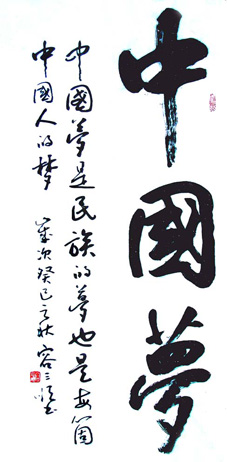 中國夢
中國夢是民族的夢也是每個
中國人的梦
歲次癸巳之秋容